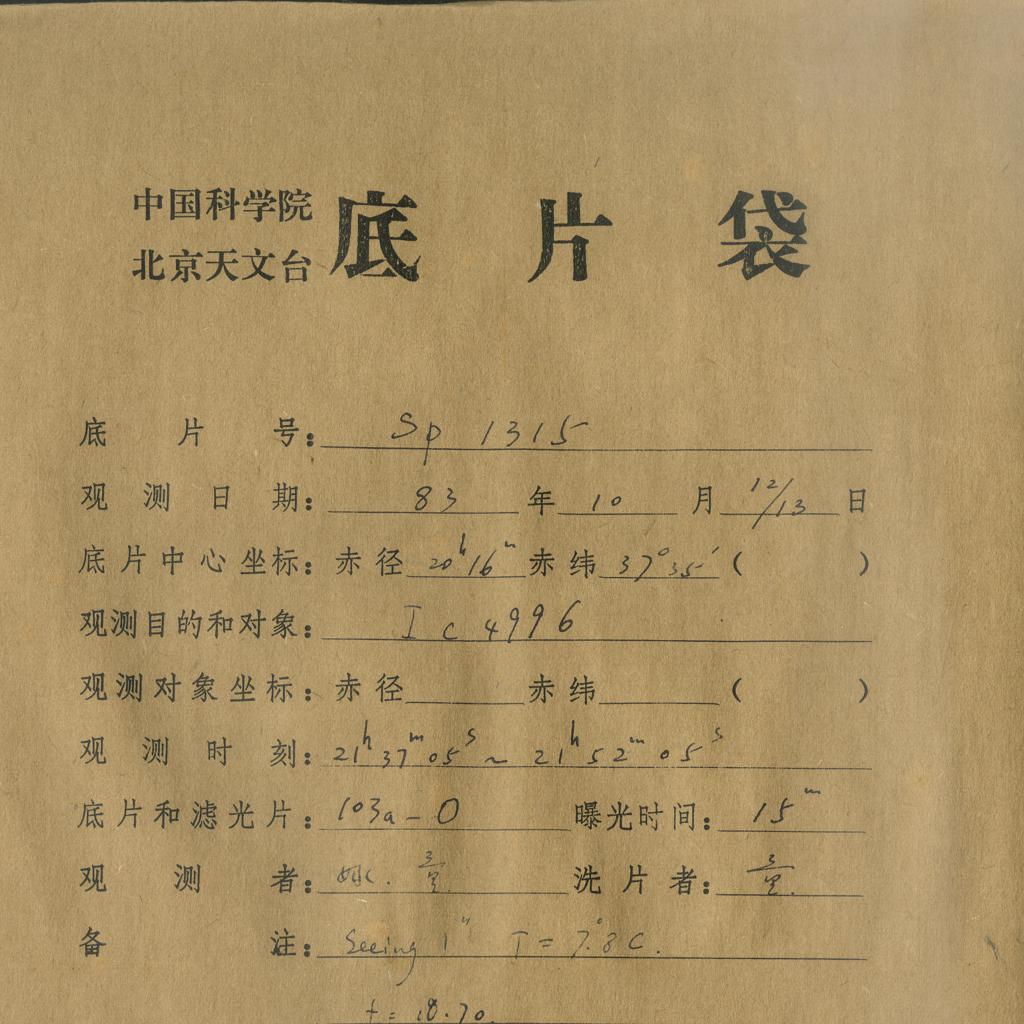 中国科学院
北京天文台
底片袋
底片号：Sp 1315
观测日期：83年10月12/13日
底片中心坐标：赤径20h16m赤纬37°35′（ ）
观测目的和对象：Ic 4996
观测对象坐标：赤径 赤纬 （ ）
观测时刻：21h37m05s～21h52m05s
底片和滤光片：103a-O 曝光时间：15m
观测者：姚. 洗片者：
备注：Seeing 1" T=7.°8C.
t=18.70